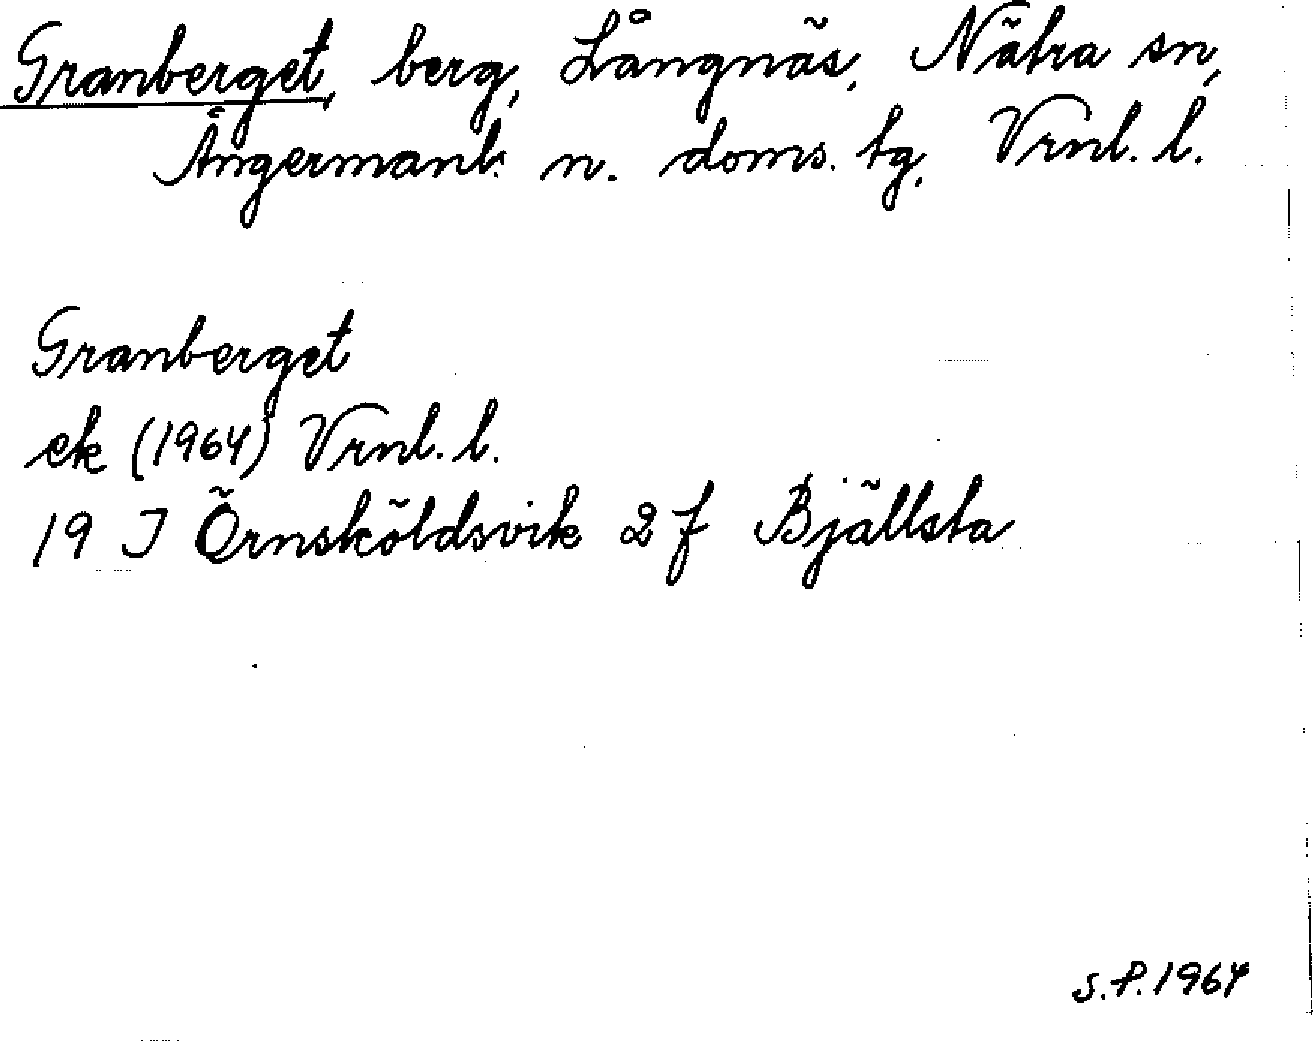 Granberget, berg, Långnäs, Nätra sn,
Ångermanl. n. doms. tg, Vrnl. l.
Granberget
ek (1964) Vrnl. l.
19 J Örnsköldsvik 2 f Bjällsta
S.P. 1964